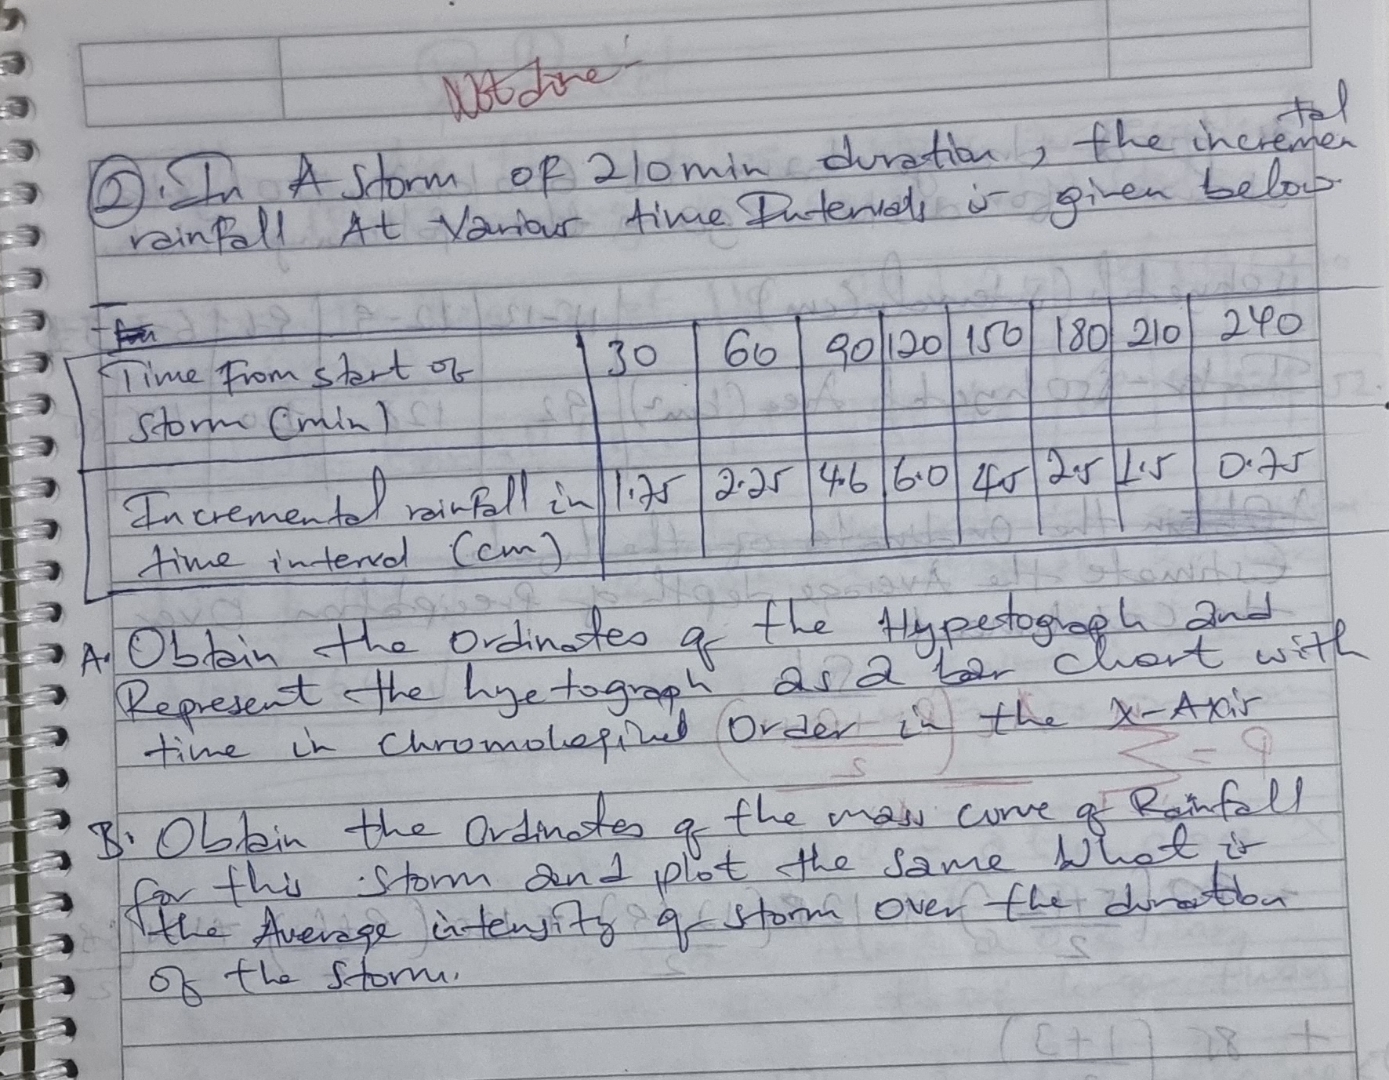 Not done
②. In A storm of 210min duration, the incremental
rainfall At Various time Intervals is given below
Time from start of 30 60 90 120 150 180 210 240
storm (min)
Incremental rainfall in 1.75 2.25 4.6 6.0 4.5 2.5 1.5 0.75
time interval (cm)
A. Obtain the Ordinates of the Hypetograph and
Represent the hyetograph as a bar chart with
time in Order in the X-Axis
B. Obtain the Ordinates of the mass curve of Rainfall
for this storm and plot the same What is
the Average intensity of storm over the duration
of the storm.